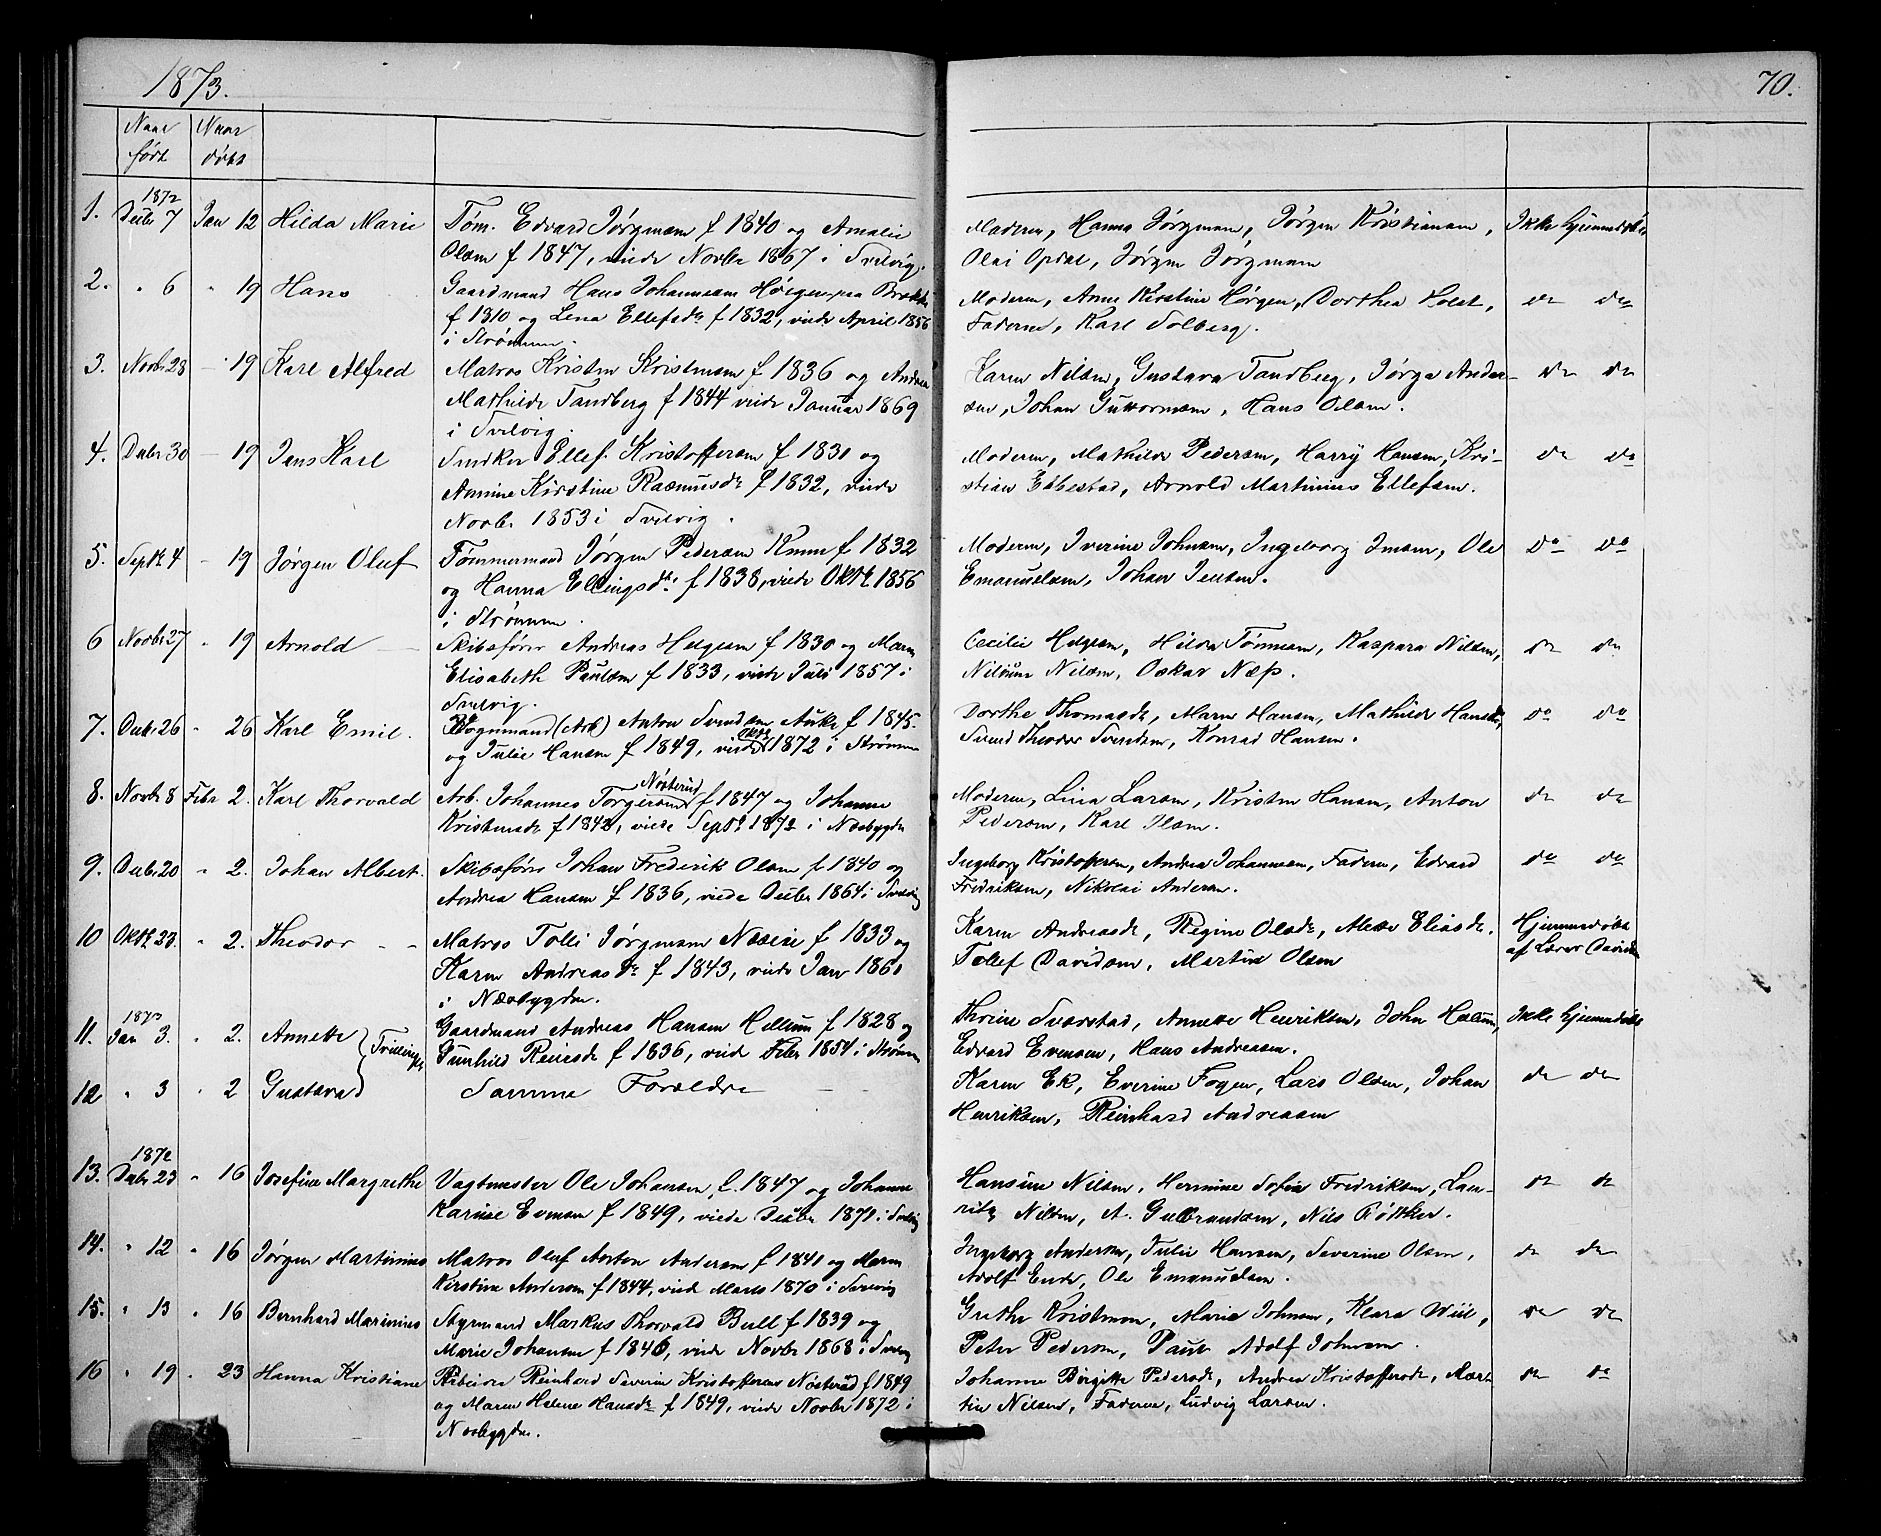 1873.
70.
Naar født
Naar døbt
1. 1872 Decbr 7 Jan 12 Hilda Marie Tøm. Edvard Jørgensen f 1840 og Amalie
Olsen f 1847, viede Novbr 1867 i Svelvig.
Moderen, Hanna Jørgensen, Jørgen Kristiansen,
Olai Opdal, Jørgen Jørgensen
Ikke hjemmedøbt
2. " 6 " 19 Hans Gaardmand Hans Johannesen Hørgen paa
f 1810 og Lena Ellefsdr f 1832, viede April 1856
i Strømmen.
Moderen, Anne Kirstine Hørgen, Dorthea Holst,
Faderen, Karl Solberg.
do do
3. Novbr 28 - " 19 Karl Alfred Matros Kristen Kristensen f 1836 og Andrea
Mathilde Tandberg f 1844 viede Januar 1869
i Svelvig.
Karen Nilsen, Gustava Tandberg, Jørgen Ander-
sen, Johan Guttormsen, Hans Olsen.
do do
4. Decbr 30 - 19 Jens Karl Snedker Ellef Kristoffersen f 1831 og
Annine Kirstine Rasmusdr f 1832, viede
Novbr. 1853 i Svelvig.
Moderen, Mathilde Pedersen, Harry Hansen, Kri-
stian Ebbestad, Arnold Martinius Ellefsen.
do do
5. Septbr 4 - 19 Jørgen Oluf Tømmermand Jørgen Pedersen f 1832
og Hanna Ellingsdr. f 1838, viede Oktbr. 1856
i Strømmen.
Moderen, Iverine Johnsen, Ingeborg Jensen, Ole
Emanuelsen, Johan Jensen.
do do
6 Novbr 27 " 19 Arnold Skibsfører Andreas Helgesen f 1830 og Maren
Elisabeth Paulsen f 1833, viede Juli 1857 i
Svelvig.
Cecilie Helgesen, Hilda Tønnesen, Kaspara Nilsen,
Nilsine Nilsen, Oskar Næp.
do do
7. Decbr 26 " 26 Karl Emil. Bognmand (Arb) Anton Svendsen Auke f 1845
og Julie Hansen f 1849, viede Oktbr 1872 i Strømm
Dorthe Thomasdr, Maren Hansen, Mathilde Hansdr,
Svend Theodor Svendsen, Konrad Hansen.
do do
8. Novbr 8 Febr 2. Karl Thorvald Arb. Johannes Torgersen Nøsterud f 1847 og Johanne
Kristensdr f 1842, viede Septbr 1872 i Næsbygden
Moderen, Lina Larsen, Kristen Hansen, Anton
Pedersen, Karl Olsen.
do do
9. Decbr 20 " 2. Johan Albert. Skibsfører Johan Frederik Olsen f 1840 og
Andrea Hansen f 1836, viede Decbr 1864 i Svelvig
Ingeborg Kristoffersen, Andrea Johannesen, Faderen, Edvard
Fredriksen, Nikolai Andersen.
do do
10 Oktbr. 23. " 2. Theodor - - Matros Tolli Jørgensen Næsie f 1833 og
Karen Andreasdr f 1843, viede Jan 1861
i Næsbygden.
Karen Andreasdr, Regine Olsdr, Mette Eliasdr.
Tollef Davidsen, Martin Olsen
Hjemmedøbt
af Lærer Davidsen
11. 1873 Jan 3. " 2. Annette } Tvillinger Gaardmand Andreas Hansen Hellum f 1828 og
Gunhild Reiersdr f 1836, viede Febr 1854 i Strømm
Thrine Sværstad, Annette Henriksen, John Hellum,
Edvard Evensen, Hans Andreasen.
Ikke hjemmedøbt
12 " 3 " 2 Gustava } Samme Forældre -
Karen Ek, Everine Fogen, Lars Olsen, Johan
Henriksen, Reinhard Andreasen
do do
13. 1872 Decbr 23 " 16 Josefine Margrethe Vagtmester Ole Johansen f. 1847 og Johanne
Karine Evensen f 1849, viede Decbr 1871 i Svelvig
Hansine Nilsen, Hermine Sofie Fredriksen, Lau-
ritz Nilsen, A. Gulbrandsen, Nils Bøttker.
do do
14. " 12 " 16 Jørgen Martinius Matros Oluf Anton Andersen f 1841 og Maren
Kirstine Andersen f 1844, viede Marts 1870 i Svelvig
Ingeborg Andersen, Julie Hansen, Severine Olsen,
Adolf Ende, Ole Emanuelsen.
do do
15. " 13 " 16 Bernhard Marinius Styrmand Markus Thorvald Bull f 1839 og
Marie Johansen f 1846, viede Novbr 1868 i Svelvig
Grethe Kristensen, Marie Johnsen, Klara Wiil,
Peter Pedersen, Paul Adolf Johnsen.
do do
16 " 19 " 23 Hanna Kristiane Arbeider Reinhard Severin Kristoffersen Nøsterud f 1849
og Maren Helene Hansdr f 1849, viede Novbr 1872 i
Næsbygden.
Johanne Birgitte Pedersdr, Andrea Kristoffersdr, Mar-
tin Nilsen, Faderen, Ludvig Larsen.
do do